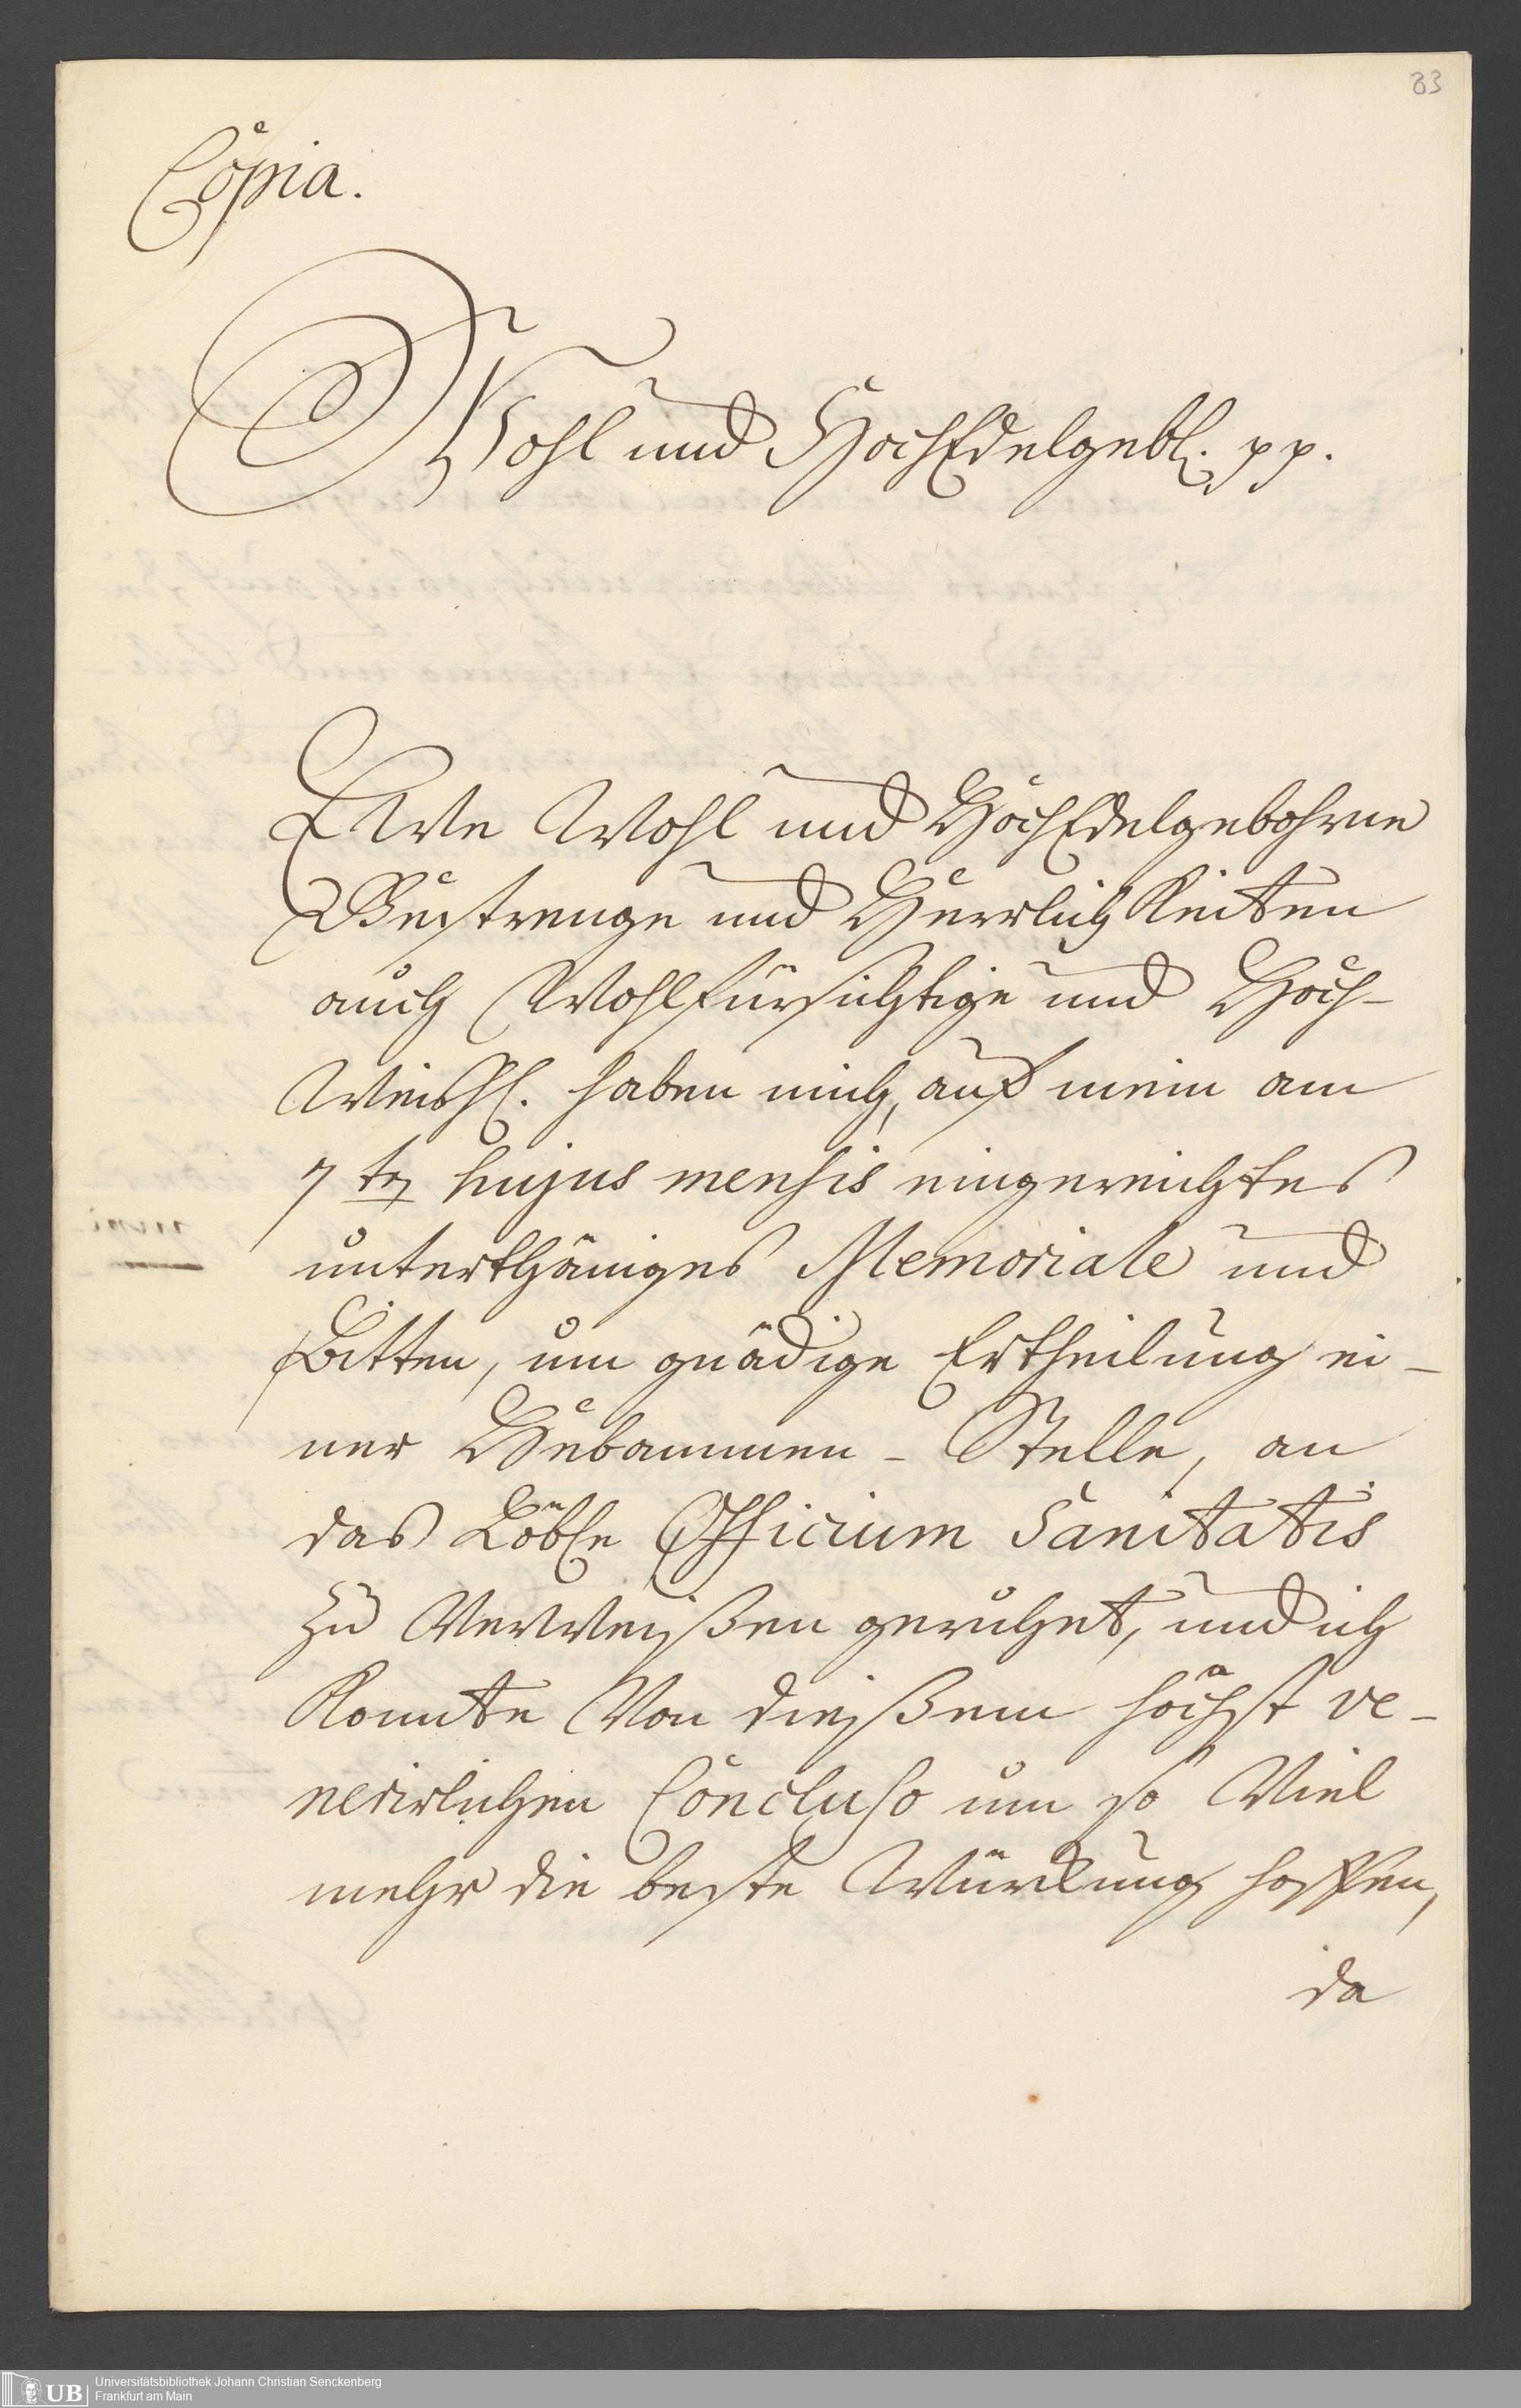 83
Copia.
Wohl und HochEdelgebl. pp.
EWe Wohl und HochEdelgebohrne
Gestrenge und HerrlichKeiten
auch Wohlfürsichtige und Hoch-
Weishl. haben mich, auf mein am
7 ten hujus mensis eingereichtes
unterthäniges Memoriale und
Bitten, um gnädige Ertheilung ei-
ner Hebammen-Stelle, an
das Löble Officium Sanitatis
zu Verweißen geruhet, und ich
Konnte Von dießem höchst ve-
nerirlichen Concluso um so Viel
mehr die beste Würckung hoffen,
da
UB
Universitätsbibliothek Johann Christian Senckenberg
Frankfurt am Main